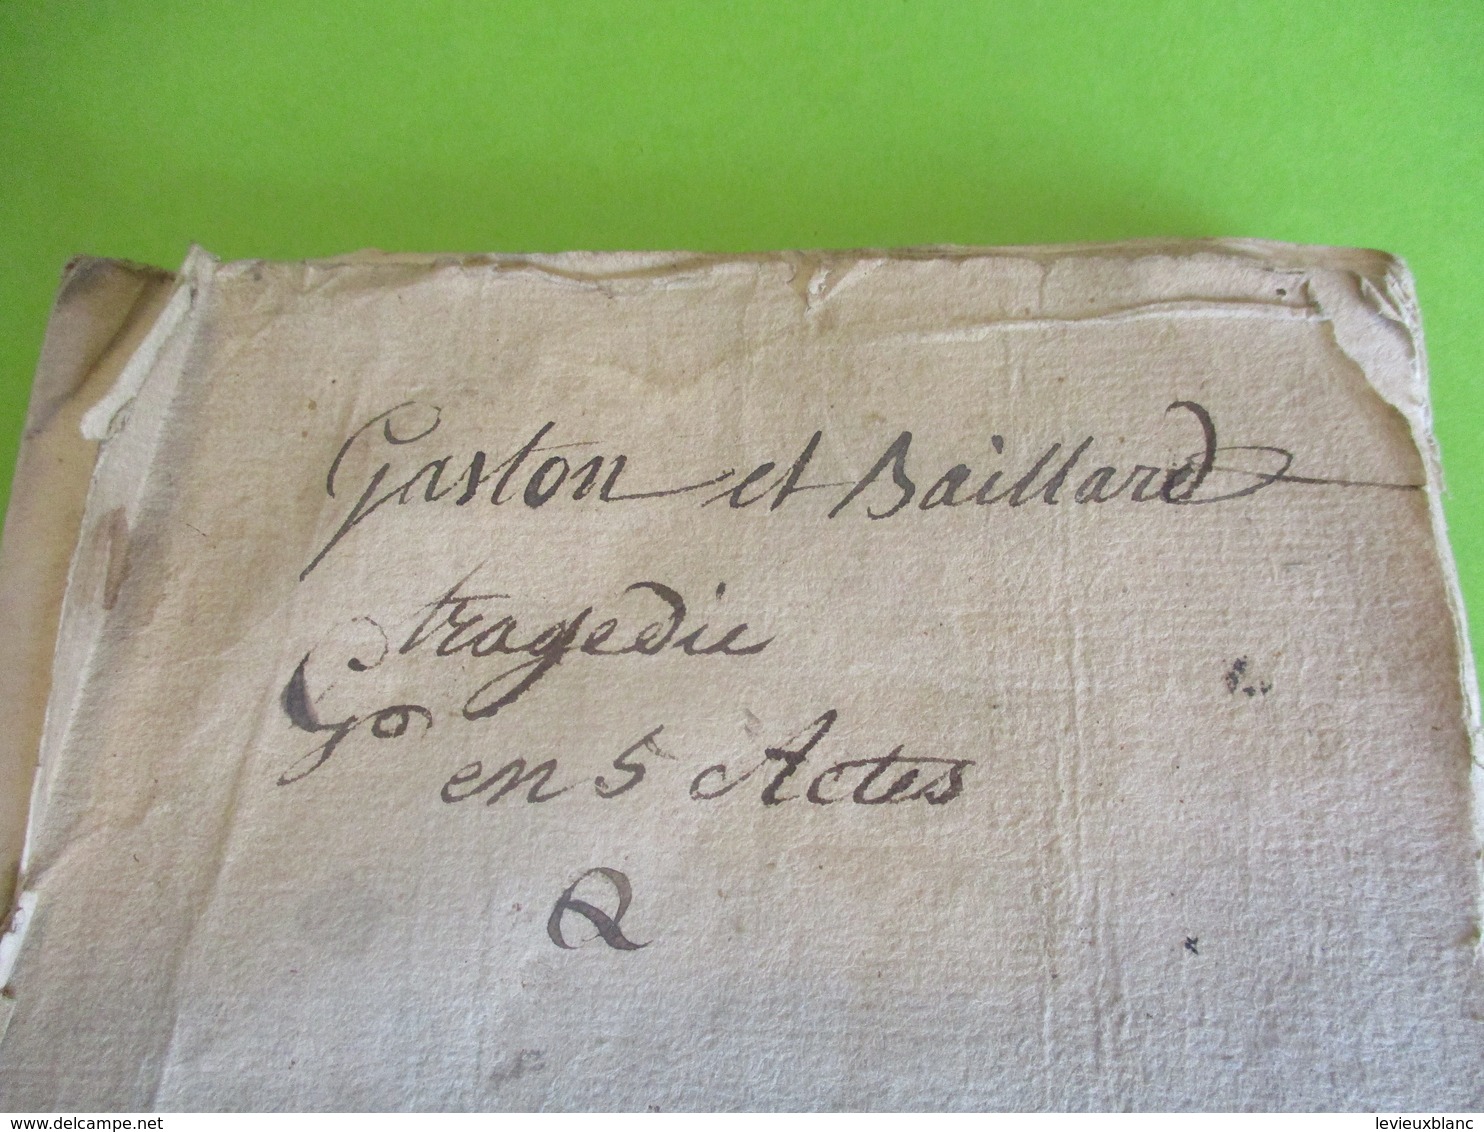 Gaston et Baillard
tragedie
en 5 Actes
Q
delcampe.net
levieuxblanc